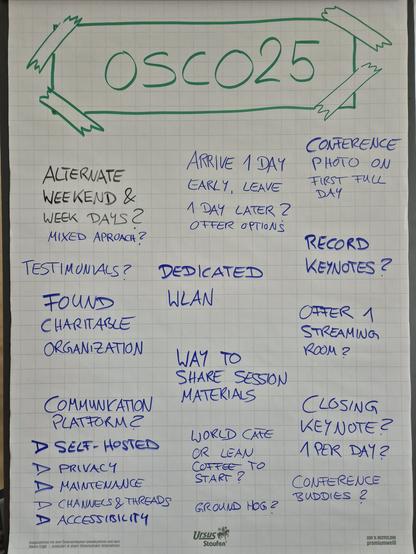 OSCO25
ALTERNATE
WEEKEND &
WEEK DAYS?
MIXED APROACH?
ARRIVE 1 DAY
EARLY, LEAVE
1 DAY LATER?
OFFER OPTIONS
CONFERENCE
PHOTO ON
FIRST FULL
DAY
TESTIMONIALS?
DEDICATED
WLAN
RECORD
KEYNOTES?
FOUND
CHARITABLE
ORGANIZATION
OFFER 1
STREAMING
ROOM?
WAY TO
SHARE SESSION
MATERIALS
COMMUNICATION
PLATFORM?
SELF-HOSTED
PRIVACY
MAINTENANCE
CHANNELS & THREADS
ACCESSIBILITY
WORLD CAFE
OR LEAN
COFFEE TO
START?
GROUND HOG?
CLOSING
KEYNOTE?
1 PER DAY?
CONFERENCE
BUDDIES?
Ursus
Staufen